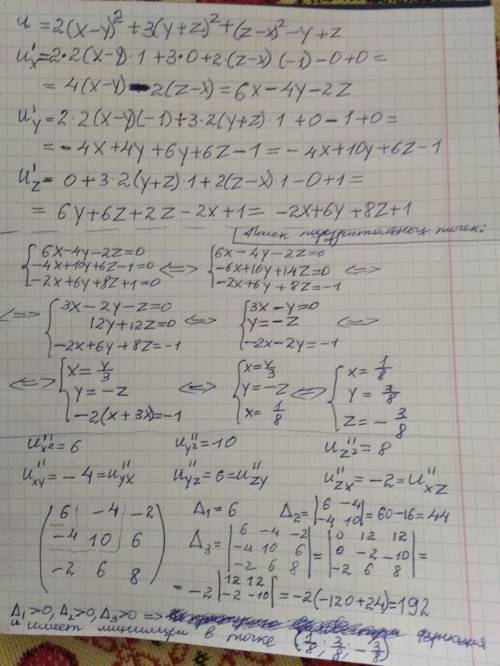 u = 2(x-y)² + 3(y+z)² + (z-x)² - y + z
u'x = 2·2(x-y)·1 + 3·0 + 2·(z-x)·(-1) - 0 + 0 =
= 4(x-y) - 2(z-x) = 6x - 4y - 2z
u'y = 2·2(x-y)(-1) + 3·2(y+z)·1 + 0 - 1 + 0 =
= -4x + 4y + 6y + 6z - 1 = -4x + 10y + 6z - 1
u'z = 0 + 3·2(y+z)·1 + 2(z-x)·1 - 0 + 1 =
= 6y + 6z + 2z - 2x + 1 = -2x + 6y + 8z + 1
Поиск подозрительных точек:
{ 6x - 4y - 2z = 0; -4x + 10y + 6z - 1 = 0; -2x + 6y + 8z + 1 = 0 <=> { 6x - 4y - 2z = 0; -6x + 16y + 14z = 0; -2x + 6y + 8z = -1 <=>
<=> { 3x - 2y - z = 0; 12y + 12z = 0; -2x + 6y + 8z = -1 <=> { 3x - y = 0; y = -z; -2x - 2y = -1 <=>
<=> { x = y/3; y = -z; -2(x + 3x) = -1 <=> { x = y/3; y = -z; x = 1/8 <=> { x = 1/8; y = 3/8; z = -3/8
u''x² = 6 u''y² = 10 u''z² = 8
u''xy = -4 = u''yx u''yz = 6 = u''zy u''zx = -2 = u''xz
( 6 -4 -2; -4 10 6; -2 6 8 ) Δ₁ = 6 Δ₂ = | 6 -4; -4 10 | = 60 - 16 = 44
Δ₃ = | 6 -4 -2; -4 10 6; -2 6 8 | = | 0 12 12; 0 -2 -10; -2 6 8 | =
= -2 | 12 12; -2 -10 | = -2(-120 + 24) = 192
Δ₁>0, Δ₂>0, Δ₃>0 => функция
u имеет минимум в точке (1/8; 3/8; -3/8)